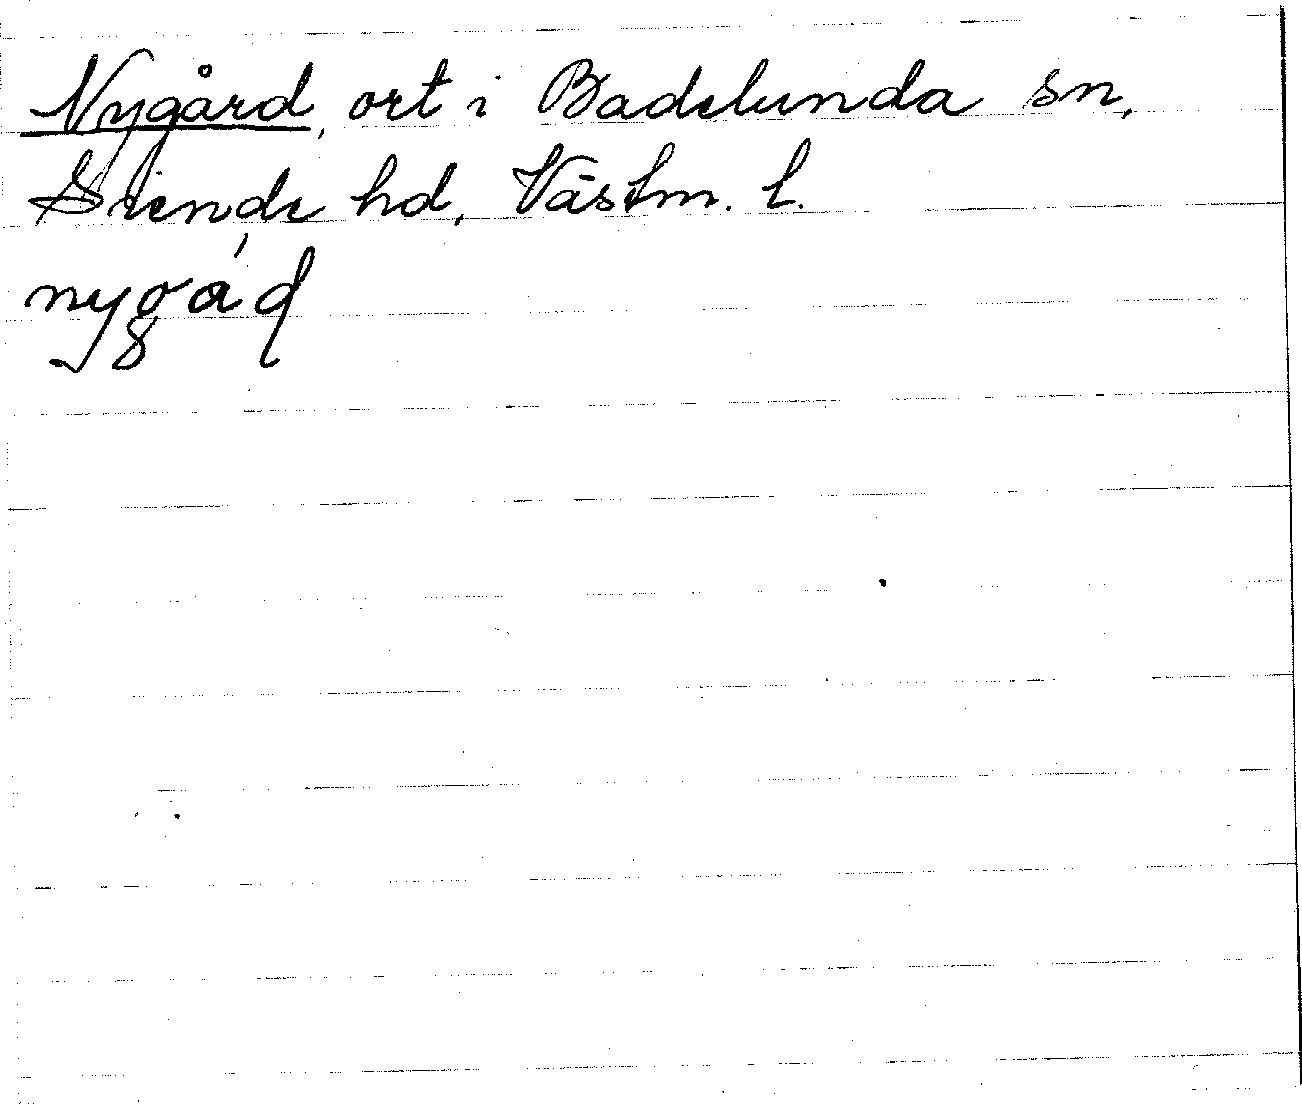 Nygård, ort i Badelunda sn,
Siende hd, Västm. l.
nygáḍ